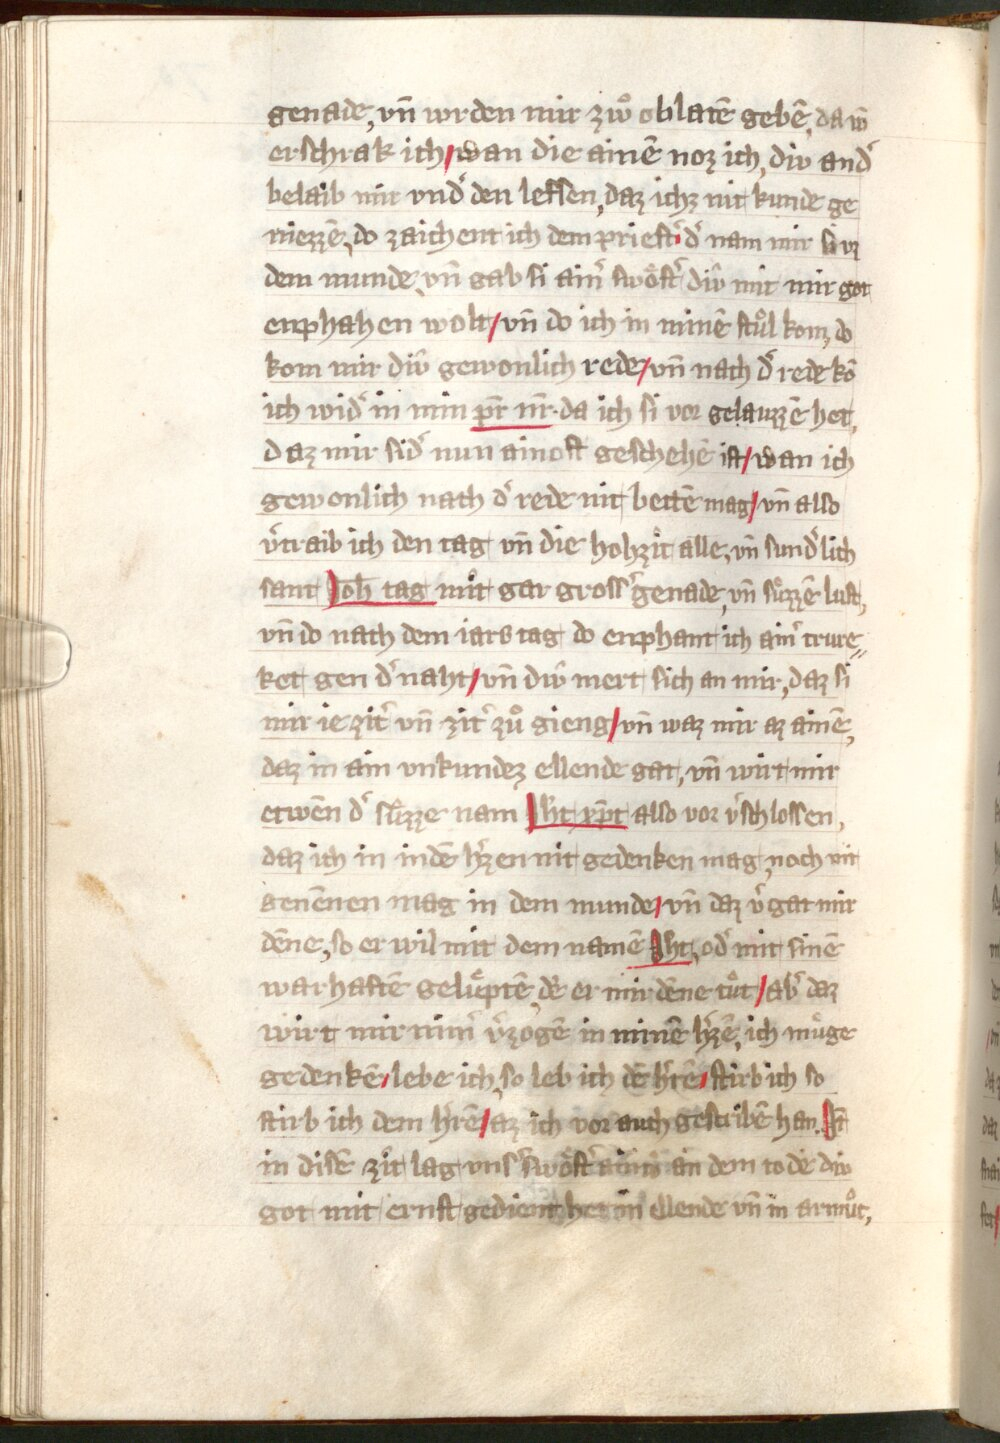 genade, vn̄ wrden mir zwo oblatē gebē, da vō
erschrak ich/ wan die ainē noz ich, div andʼ
belaib mir vndʼ den lefsen, daz ichz nit kunde ge
niezzē, do zaichent ich dem priestʼ. dʼ nam mir si vz
dem munde, vn̄ gab si ainʼ swöstʼ div mit mir got
enphahen wolt/ vn̄ do ich in minē stůl kom, do
kom mir div gewonlich rede/ vn̄ nach dʼ rede kō
ich widʼ in min pr̄ nr̄. da ich si vor gelauzzē het,
daz mir sidʼ nun ainost geschehē ist/ wan ich
gewonlich nach dʼ rede nit bettē mag/ vn̄ also
vʼtraib ich den tag vn̄ die hohzit alle, vn̄ sundʼlich
sant Joh̄ tag mit gar grossʼ genade, vn̄ sůzzē lust,
vn̄ do nach dem iars tag do enphant ich ainʼ trure⸗
ket gen dʼ naht/ vn̄ div mert sich an mir, daz si
mir ie zitʼ vn̄ zitʼ zů gieng/ vn̄ waz mir az ainē,
daz in ain vnkundez ellende gat, vn̄ wirt mir
etwēn dʼ sůzze nam Jh̄c xp̄c also vor vʼschlossen,
daz ich in in dē hʼzen nit gedenken mag, noch nit
genēnen mag in dem munde/ vn̄ daz vʼgat mir
dēne, so er wil mit dem namē Jh̄c, odʼ mit sinē
warhaftē gelůptē, dē er mir dēne tůt/ abʼ daz
wirt mir nimʼ vʼzogē in minē hʼzē, ich můge
gedenkē/ lebe ich, so leb ich dē hʼrē/ stirb ich so
stirb ich dem hʼrē/ az ich vor auch gescribē han. Jt̄
in disē zit lag vnsʼ swöstʼ ainiv an dem tode div
got mit ernst gedient het in ellende vn̄ in armůt,